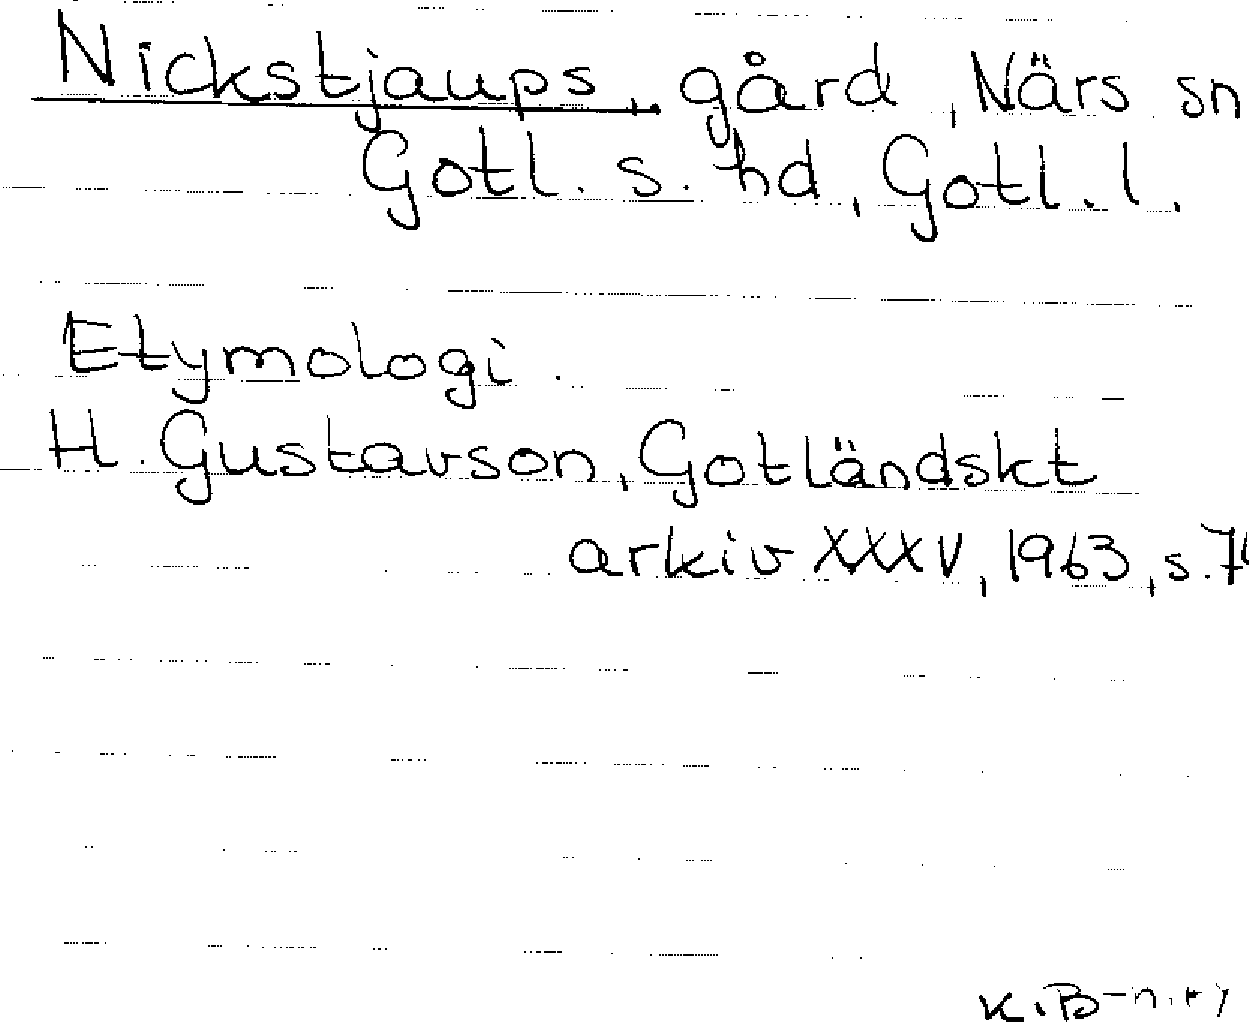 Nickstjaups, gård, Närs sn
Gotl. s. hd, Gotl. l.
Etymologi.
H. Gustavson, Gotländskt
arkiv XXXV, 1963, s.
K.B-n.